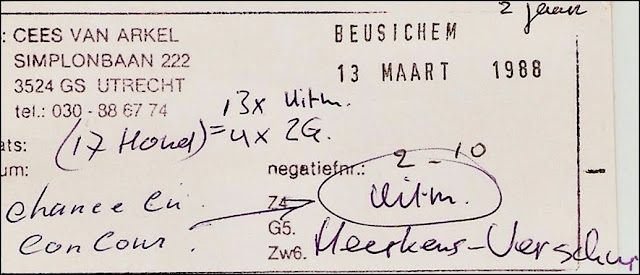 2 jaar
: CEES VAN ARKEL
BEUSICHEM
SIMPLONBAAN 222
3524 GS UTRECHT
13 MAART 1988
tel.: 030 - 88 67 74
13x Uitm.
(17 Hond) = 4x ZG.
ats:
um:
negatiefnr.: 2 - 10
Z4
Uitm.
chance en
G5.
concour.
Zw6. Meerkens-Verschur